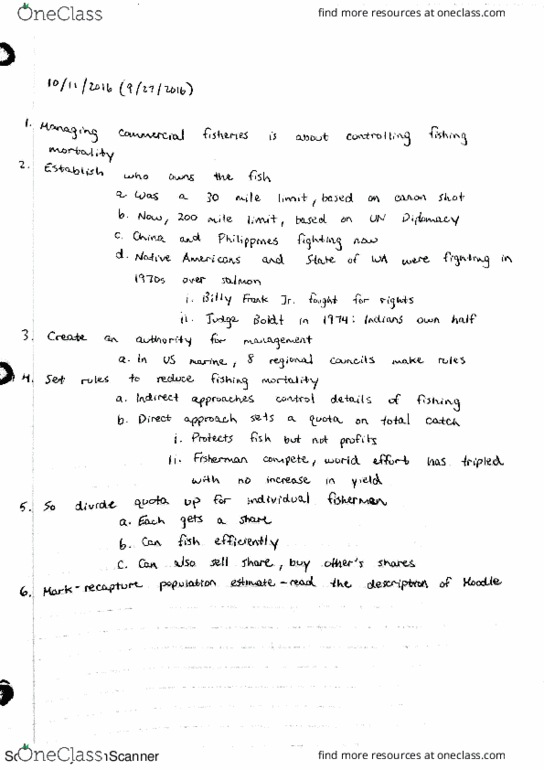 OneClass
find more resources at oneclass.com
10/11/2016 (9/27/2016)
1. Managing commercial fisheries is about controlling fishing
mortality
2. Establish who owns the fish
a. Was a 30 mile limit, based on canon shot
b. Now, 200 mile limit, based on UN Diplomacy
c. China and Philippines fighting now
d. Native Americans and State of WA were fighting in
1970s over salmon
i. Billy Frank Jr. fought for rights
ii. Judge Boldt in 1974: Indians own half
3. Create an authority for management
a. in US marine, 8 regional councils make rules
4. Set rules to reduce fishing mortality
a. Indirect approaches control details of fishing
b. Direct approach sets a quota on total catch
i. Protects fish but not profits
ii. Fisherman compete, world effort has tripled
with no increase in yield
5. So divide quota up for individual fisherman
a. Each gets a share
b. Can fish efficiently
c. Can also sell share, buy other's shares
6. Mark-recapture population estimate - read the description of Moodle
OneClass
Scanner
find more resources at oneclass.com